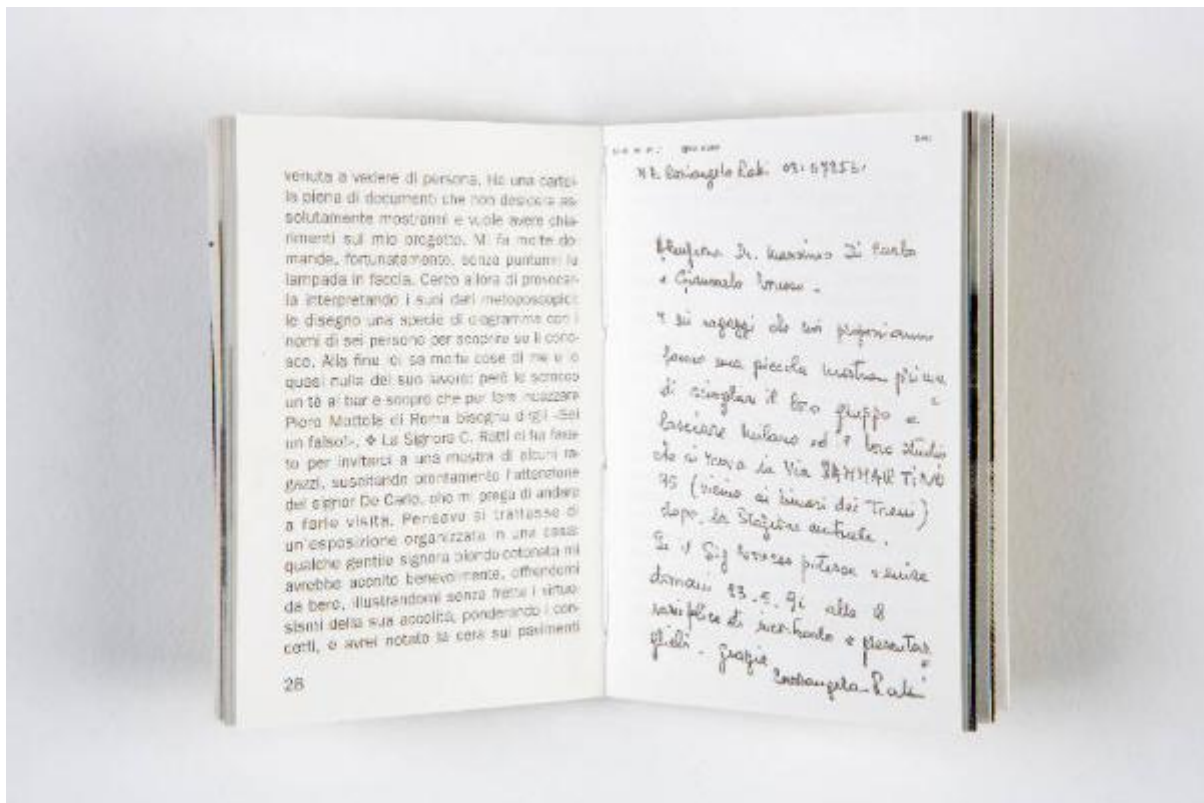 venuta a vedere di persona. Ha una cartel-
la piena di documenti che non desidera as-
solutamente mostrarmi e vuole avere chia-
rimenti sul mio progetto. Mi fa molte do-
mande, fortunatamente, senza puntarmi la
lampada in faccia. Cerco allora di provocar-
la interpretando i suoi dati metoposcopici:
le disegno una specie di diagramma con i
nomi di sei persone per scoprire se li cono-
sce. Alla fine lei sa molte cose di me e io
quasi nulla del suo lavoro: però le scrocco
un tè al bar e scopro che per fare incazzare
Piero Mottola di Roma bisogna dirgli «Sei
un falso!». ❖ La Signora C. Ratti ci ha
to per invitarci a una mostra di alcuni ra-
gazzi, suscitando prontamente l'attenzione
del signor De Carlo, che mi prega di andare
a farle visita. Pensavo si trattasse di
un'esposizione organizzata in una casa:
qualche gentile signora bionda cotonata mi
avrebbe accolto benevolmente, offrendomi
da bere, illustrandomi senza fretta i virtuo-
sismi della sua accolita, ponderando i con-
cetti, e avrei notato la cera sui pavimenti
28
Ratti 02.
Dr. Massimo Di Carlo
e
ragazzi che vi
fanno una piccola mostra prima
di sciogliere il loro gruppo e
lasciare Milano ed il loro studio
che si trova in Via SAMMARTINI
75 (vicino ai binari dei Treni)
dopo la Stazione centrale.
Se il Sig potesse venire
domani 23.5.91 alle 18
di incontrarlo e
glieli. Grazie
Ratti